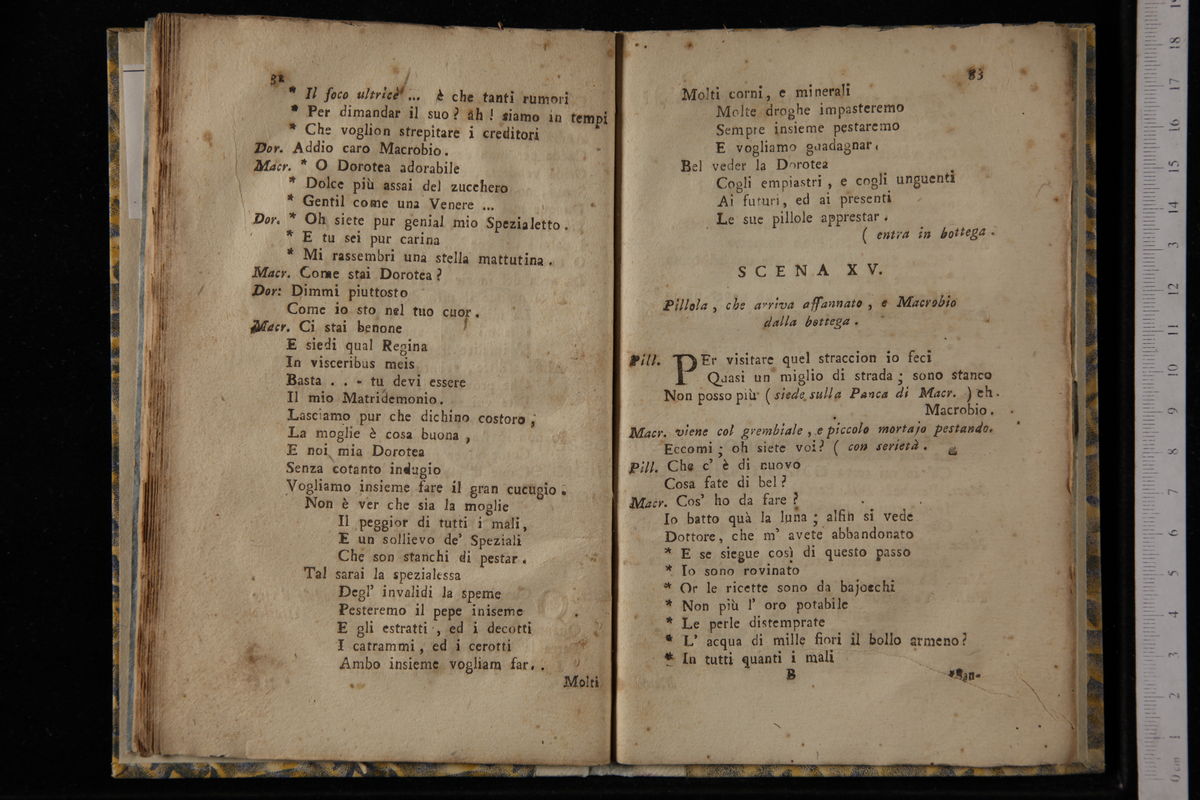 32
* Il foco ultrice ... è che tanti rumori
* Per dimandar il suo? ah! siamo in tempi
* Che voglion strepitare i creditori
Dor. Addio caro Macrobio.
Macr. * O Dorotea adorabile
* Dolce più assai del zucchero
* Gentil come una Venere ...
Dor. * Oh siete pur genial mio Spezialetto.
* E tu sei pur carina
* Mi rassembri una stella mattutina.
Macr. Come stai Dorotea?
Dor: Dimmi piuttosto
Come io sto nel tuo cuor.
Macr. Ci stai benone
E siedi qual Regina
In visceribus meis
Basta . . - tu devi essere
Il mio Matridemonio.
Lasciamo pur che dichino costoro;
La moglie è cosa buona,
E noi mia Dorotea
Senza cotanto indugio
Vogliamo insieme fare il gran cucugio.
Non è ver che sia la moglie
Il peggior di tutti i mali,
E un sollievo de' Speziali
Che son stanchi di pestar.
Tal sarai la spezialessa
Degl' invalidi la speme
Pesteremo il pepe iniseme
E gli estratti, ed i decotti
I catrammi, ed i cerotti
Ambo insieme vogliam far. .
Molti
83
Molti corni, e minerali
Molte droghe impasteremo
Sempre insieme pestaremo
E vogliamo guadagnar.
Bel veder la Dorotea
Cogli empiastri, e cogli unguenti
Ai futuri, ed ai presenti
Le sue pillole apprestar.
( entra in bottega.
SCENA XV.
Pillola, che arriva affannato, e Macrobio
dalla bottega.
Pill. PEr visitare quel straccion io feci
Quasi un miglio di strada; sono stanco
Non posso più ( siede sulla Panca di Macr. ) eh.
Macrobio.
Macr. viene col grembiale, e piccolo mortajo pestando.
Eccomi; oh siete voi? ( con serietà.
Pill. Che c' è di nuovo
Cosa fate di bel?
Macr. Cos' ho da fare?
Io batto quà la luna; alfin si vede
Dottore, che m' avete abbandonato
* E se siegue così di questo passo
* Io sono rovinato
* Or le ricette sono da bajocchi
* Non più l' oro potabile
* Le perle distemprate
* L' acqua di mille fiori il bollo armeno?
* In tutti quanti i mali
B